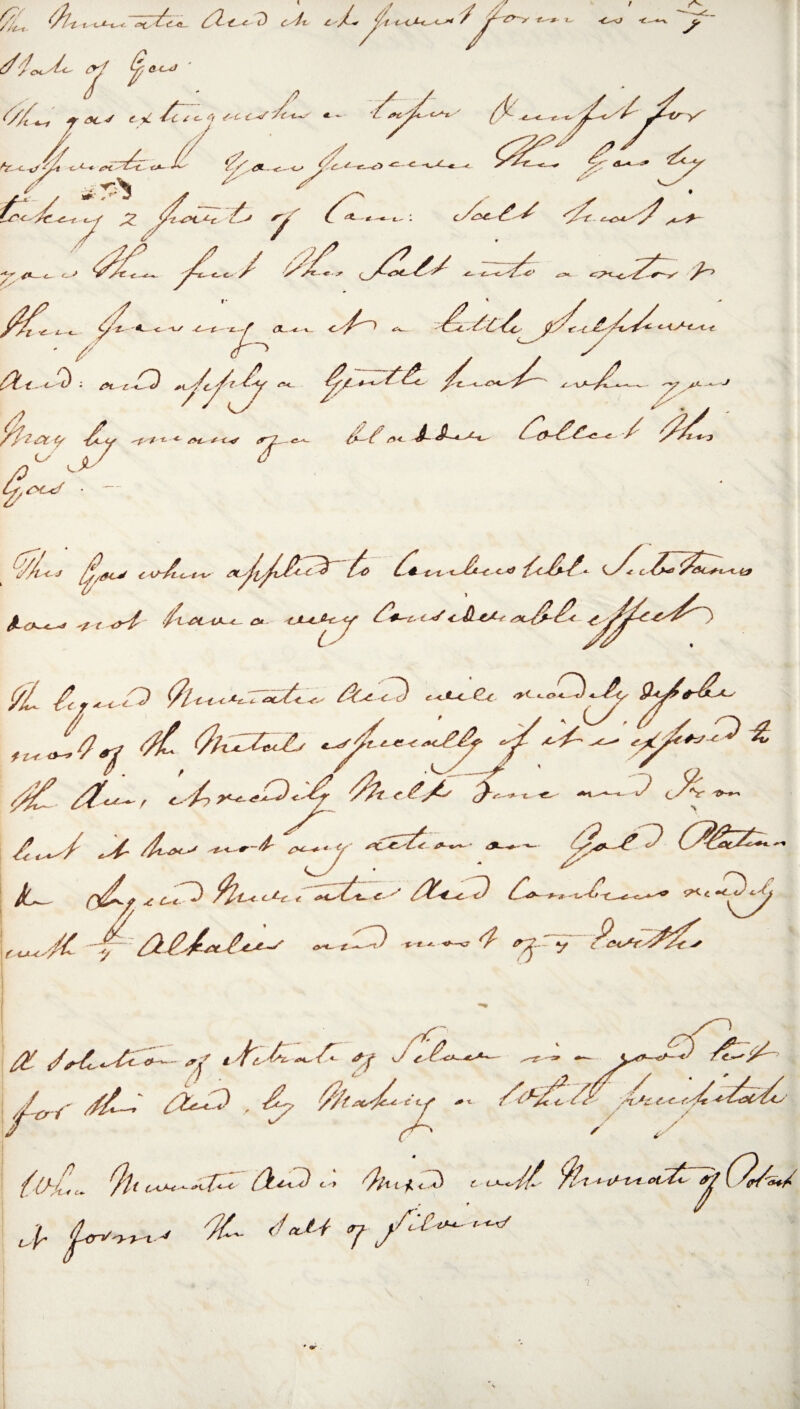 The Muriatic Acid in its purest form is in ye
State of Gas.
This gas extinguishes a taper & unfit for
respiration You procure this Gas by
taking 2 parts of Com: Salt heat it
you then put this Salt into a retort
then pouring on it a little Sulphuric
Acid: and apply a Gentle heat when you
May by means of a bladder Collect this
Gas. —
This Gas when applied to Combustible Substances
does not have a very Considerable effect
The liquid Muriatic Acid will readily
most of the Metals especially if it is exposed to
the Air, it readily Melts Zinc and Iron
but it has not any action on Gold Platina
&c Liquid Muriatic Acid Combines readily
with ye Alkalies and most of ye Earths
A Solution of Nitrate of Silver is a good test
for this Acid, by Making a White precipitate
When Muriatic Acid is Mixed with Muriate of Potash
it forms the Salt of Silvius